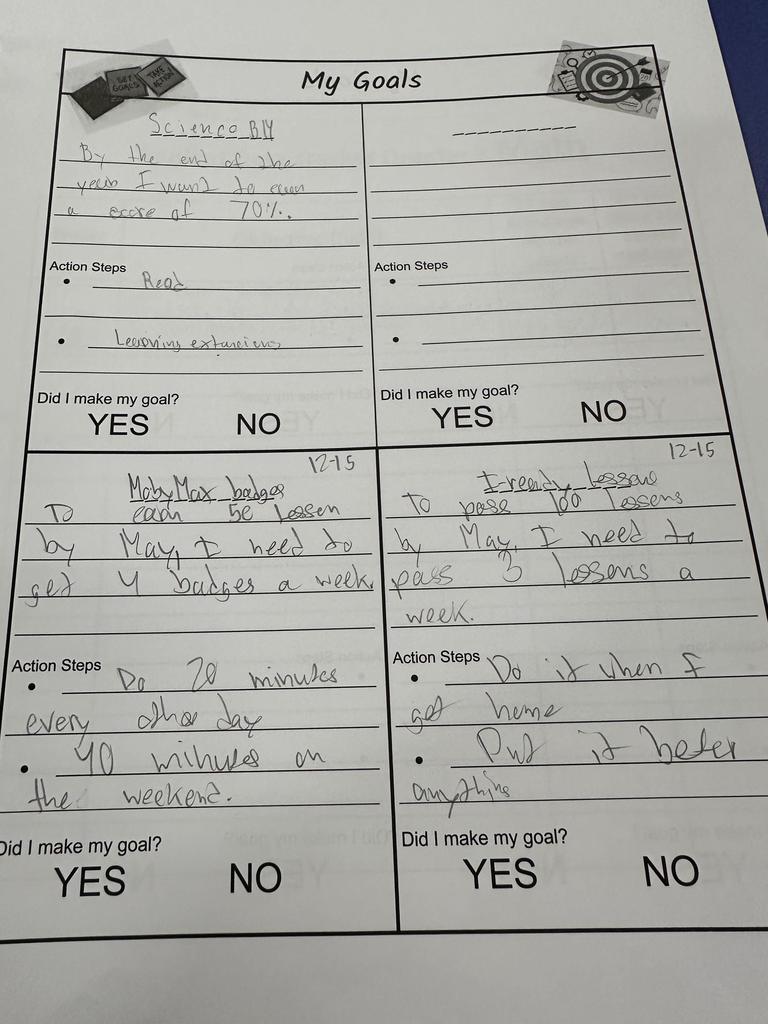 SET GOALS
TAKE ACTION
My Goals
Science BM
By the end of the
year I want to earn
a score of 70%.
Action Steps
• Read
• Learning extancions
Did I make my goal?
YES NO
----------
Action Steps
•
•
Did I make my goal?
YES NO
12-15
MobyMax badges
To earn 50 lessen
by May, I need to
get 4 badges a week.
Action Steps
• Do 20 minutes
every other day
• 40 minutes on
the weekend.
Did I make my goal?
YES NO
12-15
I-ready Lessons
To pass 100 lessens
by May, I need to
pass 3 lessons a
week.
Action Steps
• Do it when I
get home
• Put it befer
anything
Did I make my goal?
YES NO